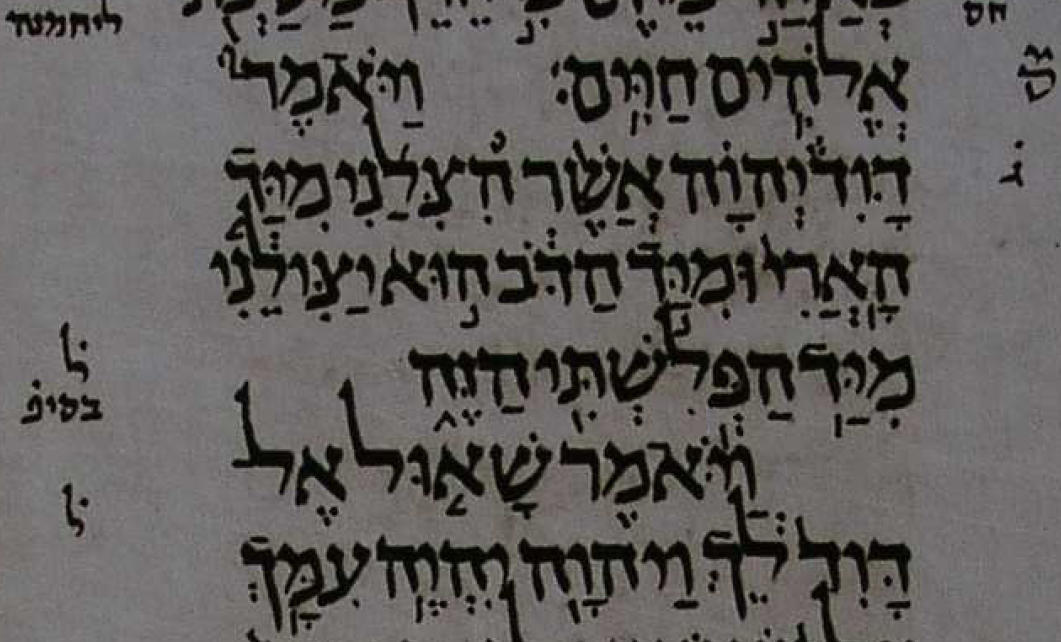 חס
אֱלֹהִ֖ים חַיִּֽים׃ וַיֹּ֣אמֶר
ג֗
דָּוִד֒ יְהוָ֗ה אֲשֶׁ֨ר הִצִּלַ֜נִי מִיַּ֤ד
הָֽאֲרִי֙ וּמִיַּ֣ד הַדֹּ֔ב ה֣וּא יַצִּילֵ֔נִי
מִיַּ֥ד הַפְּלִשְׁתִּ֖י הַזֶּ֑ה
ל֗
בסיפ֗
וַיֹּ֨אמֶר שָׁא֤וּל אֶל
ל֗
דָּוִד֙ לֵ֔ךְ וַיהוָ֖ה יִהְיֶ֥ה עִמָּֽךְ